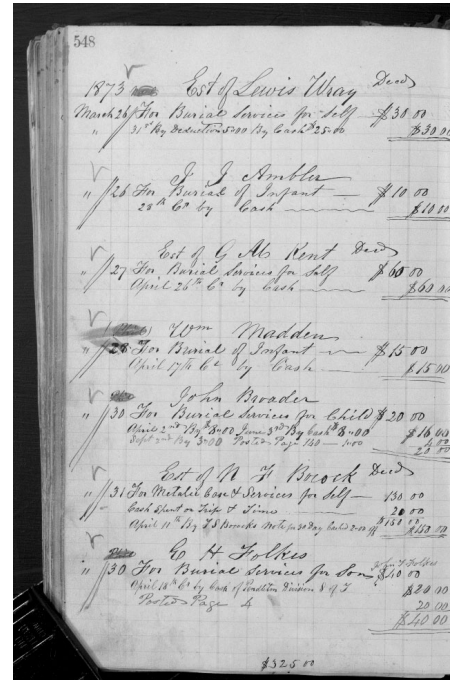 548
1873 Est of Lewis Wray Decd
March 26 For Burial Services for Self $30 00
" 31st By Deduction 5=00 By Cash $25=00 $30 00
J J Ambler
" 26 For Burial of Infant $10 00
28th Cr by Cash $10 00
Est of G M Kent Decd
" 27 For Burial Services for Self $60 00
April 26th Cr by Cash $60 00
Wm Madden
" 28 For Burial of Infant $15 00
April 17th Cr by Cash $15 00
John Broader
" 30 For Burial Services for Child $20 00
April 2nd By $8=00 June 3rd By Cash $8=00 $16 00
Sept 2nd By 3=00 Posted Page 150 1=00 4 00
20 00
Est of N F Bocock Decd
" 31 For Metalic Case & Services for Self 130 00
Cash Spent on Trip & Time 20 00
$150 00
April 11th By T S Bococks Note for 30 Day $150 00
E H Folkes
" 30 For Burial Services for Son John T Folkes $40 00
April 18th Cr by Cash of Division S of T $20 00
Posted Page 4 20 00
$40 00
$325 00